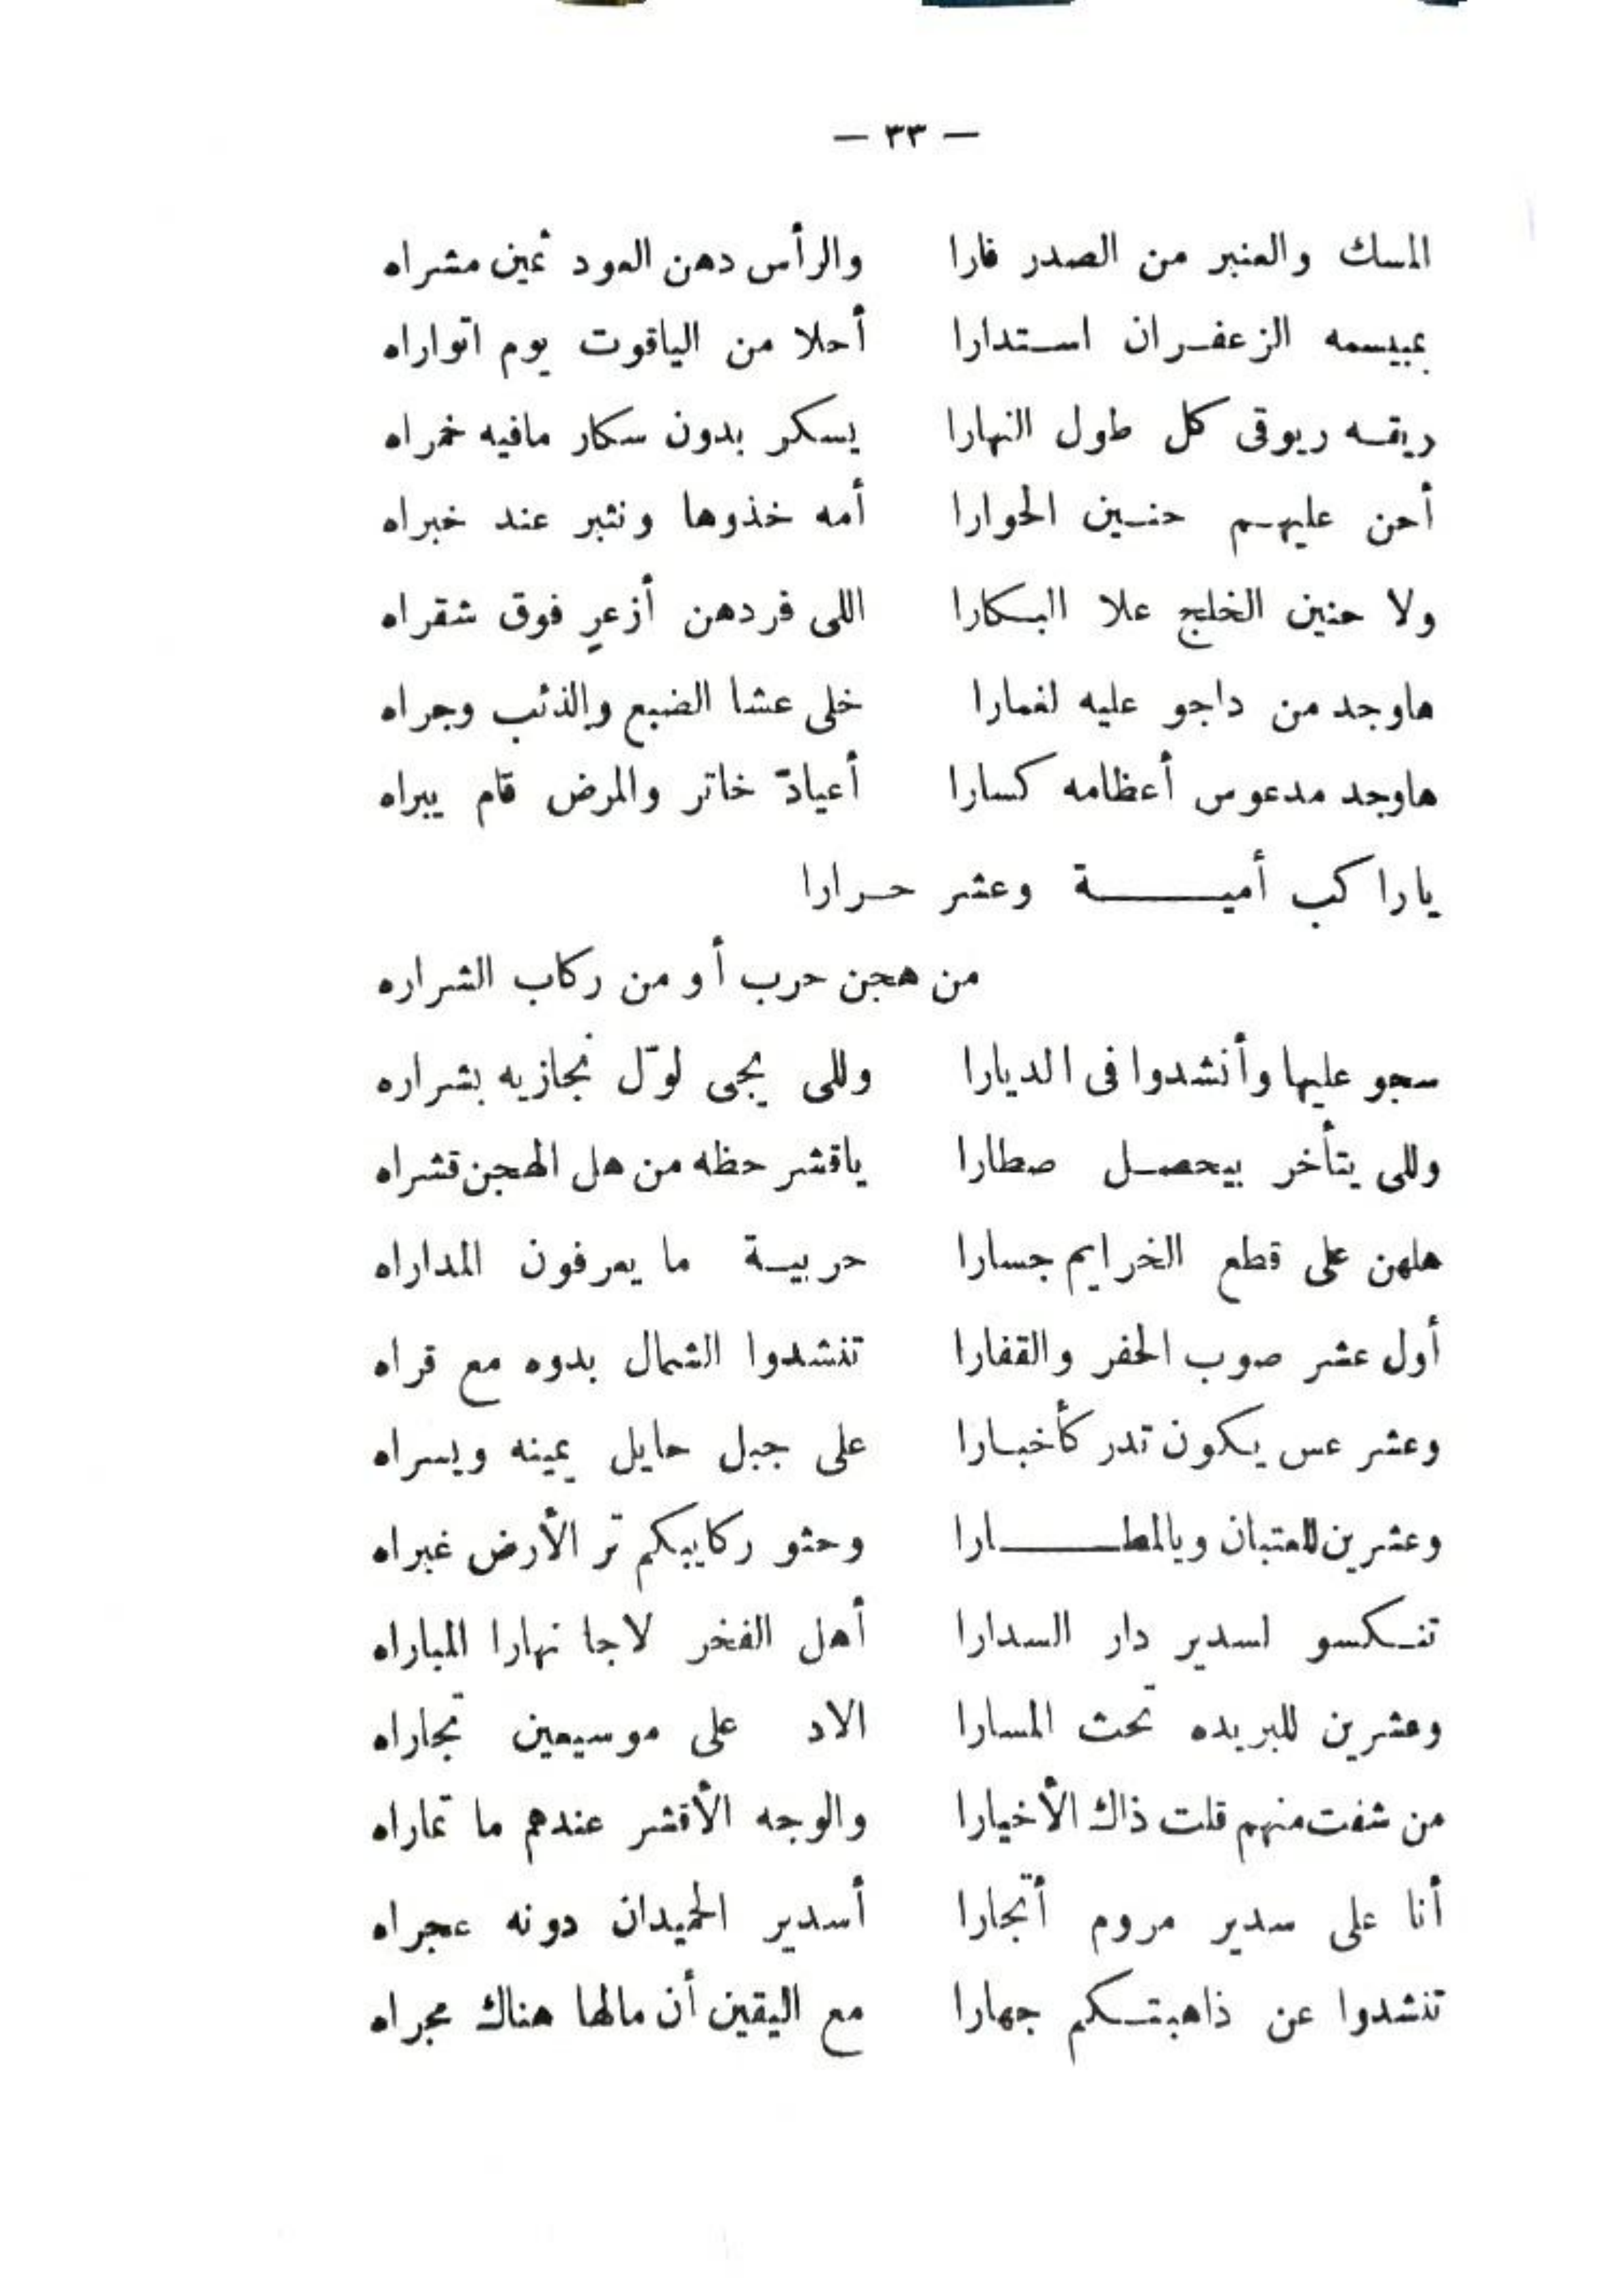 — ٣٣ —
المسك والعنبر من الصدر فارا والرأس دهن العود ثمين مشراه
بمبسمه الزعفران استدارا أحلا من الياقوت يوم اتواراه
ريقه ريوقى كل طول النهارا يسكر بدون سكار مافيه خمراه
أحن عليهم حنين الحوارا أمه خذوها ونثبر عند خبراه
ولا حنين الخلج علا البكارا اللى فردهن أزعرٍ فوق شقراه
هاوجد من داجو عليه لغمارا خلى عشا الضبع والذئب وجراه
هاوجد مدعوس أعظامه كسارا أعيادّ خاتر والمرض قام يبراه
ياراكب أمية وعشر حرارا
من هجن حرب أو من ركاب الشراره
سجو عليها وأنشدوا فى الديارا وللى يجى لوّل نجازيه بشراره
وللى يتأخر بيحصل صطارا ياقشر حظه من هل الهجن قشراه
هلهن على قطع الخرايم جسارا حربية ما يعرفون المداراه
أول عشر صوب الحفر والقفارا تنشدوا الشمال بدوه مع قراه
وعشر عس يكون تدرك أخبارا على جبل حايل يمينه ويسراه
وعشرين للعتبان ويالمطارا وحثو ركايبكم تر الأرض غبراه
تنكسو لسدير دار السدارا أهل الفخر لاجا نهارا المباراه
وعشرين للبريده تحث المسارا الاد على موسيعين تجاراه
من شفت منهم قلت ذاك الأخيارا والوجه الأقشر عندهم ما تماراه
أنا على سدير مروم أتجارا أسدير الحميدان دونه عجراه
تنشدوا عن ذاهبتكم جهارا مع اليقين أن مالها هناك مجراه